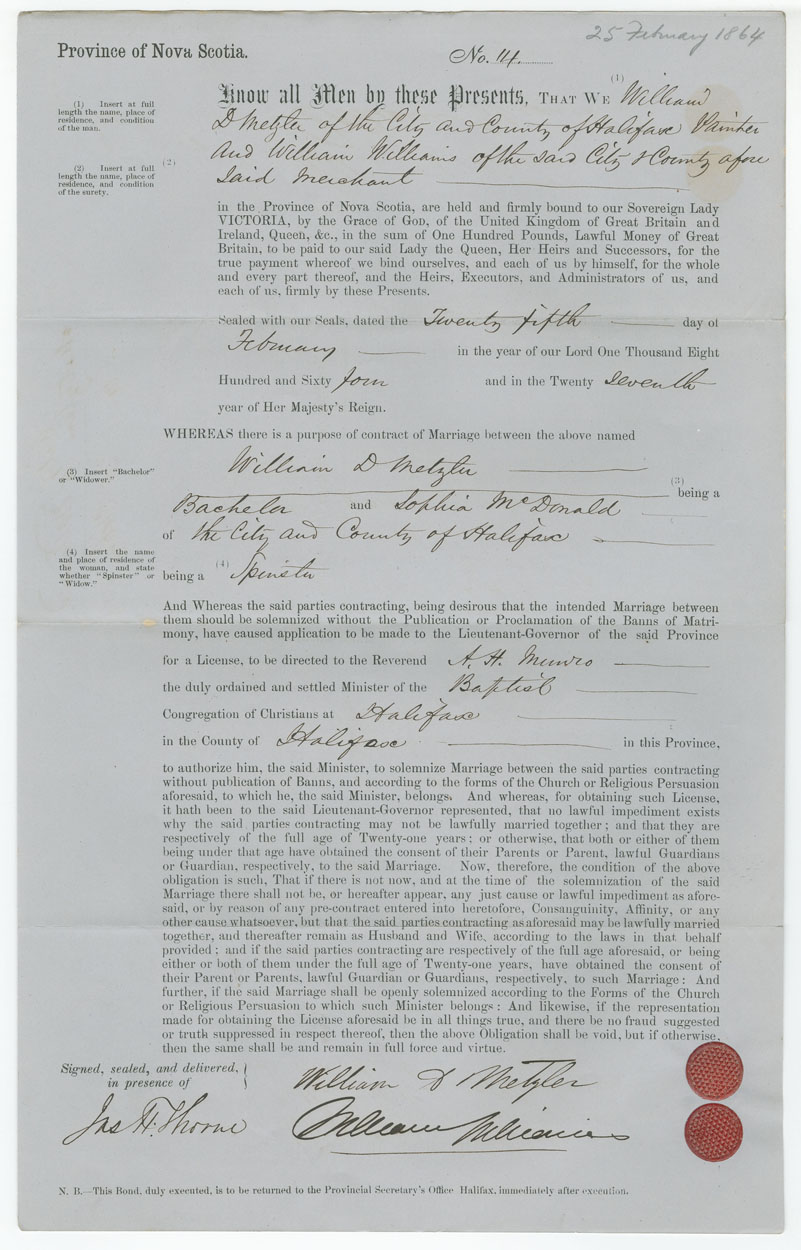 25 February 1864
Province of Nova Scotia.
No. 114.
(1) Insert at full
length the name, place of
residence, and condition
of the man.
(2) Insert at full
length the name, place of
residence, and condition
of the surety.
Know all Men by these Presents, THAT WE (1) William
D Metzler of the City and County of Halifax Painter
(2) And William Williams of the said City & County afore
said Merchant
in the Province of Nova Scotia, are held and firmly bound to our Sovereign Lady
VICTORIA, by the Grace of GOD, of the United Kingdom of Great Britain and
Ireland, Queen, &c., in the sum of One Hundred Pounds, Lawful Money of Great
Britain, to be paid to our said Lady the Queen, Her Heirs and Successors, for the
true payment whereof we bind ourselves, and each of us by himself, for the whole
and every part thereof, and the Heirs, Executors, and Administrators of us, and
each of us, firmly by these Presents.
Sealed with our Seals, dated the Twenty fifth day of
February in the year of our Lord One Thousand Eight
Hundred and Sixty four and in the Twenty Seventh
year of Her Majesty's Reign.
WHEREAS there is a purpose of contract of Marriage between the above named
(3) Insert "Bachelor"
or "Widower."
William D Metzler
(3) being a
Bachelor and Sophia McDonald
of the City and County of Halifax
(4) Insert the name
and place of residence of
the woman, and state
whether "Spinster" or
"Widow."
being a (4) Spinster
And Whereas the said parties contracting, being desirous that the intended Marriage between
them should be solemnized without the Publication or Proclamation of the Banns of Matri-
mony, have caused application to be made to the Lieutenant-Governor of the said Province
for a License, to be directed to the Reverend A. H. Munro
the duly ordained and settled Minister of the Baptist
Congregation of Christians at Halifax
in the County of Halifax in this Province,
to authorize him, the said Minister, to solemnize Marriage between the said parties contracting
without publication of Banns, and according to the forms of the Church or Religious Persuasion
aforesaid, to which he, the said Minister, belongs. And whereas, for obtaining such License,
it hath been to the said Lieutenant-Governor represented, that no lawful impediment exists
why the said parties contracting may not be lawfully married together; and that they are
respectively of the full age of Twenty-one years; or otherwise, that both or either of them
being under that age have obtained the consent of their Parents or Parent, lawful Guardians
or Guardian, respectively, to the said Marriage. Now, therefore, the condition of the above
obligation is such, That if there is not now, and at the time of the solemnization of the said
Marriage there shall not be, or hereafter appear, any just cause or lawful impediment as afore-
said, or by reason of any pre-contract entered into heretofore, Consanguinity, Affinity, or any
other cause whatsoever, but that the said parties contracting as aforesaid may be lawfully married
together, and thereafter remain as Husband and Wife, according to the laws in that behalf
provided; and if the said parties contracting are respectively of the full age aforesaid, or being
either or both of them under the full age of Twenty-one years, have obtained the consent of
their Parent or Parents, lawful Guardian or Guardians, respectively, to such Marriage: And
further, if the said Marriage shall be openly solemnized according to the Forms of the Church
or Religious Persuasion to which such Minister belongs: And likewise, if the representation
made for obtaining the License aforesaid be in all things true, and there be no fraud suggested
or truth suppressed in respect thereof, then the above Obligation shall be void, but if otherwise,
then the same shall be and remain in full force and virtue.
Signed, sealed, and delivered,
in presence of
William D Metzler
Jas H. Thorne
William Williams
N. B.—This Bond, duly executed, is to be returned to the Provincial Secretary's Office Halifax, immediately after execution.